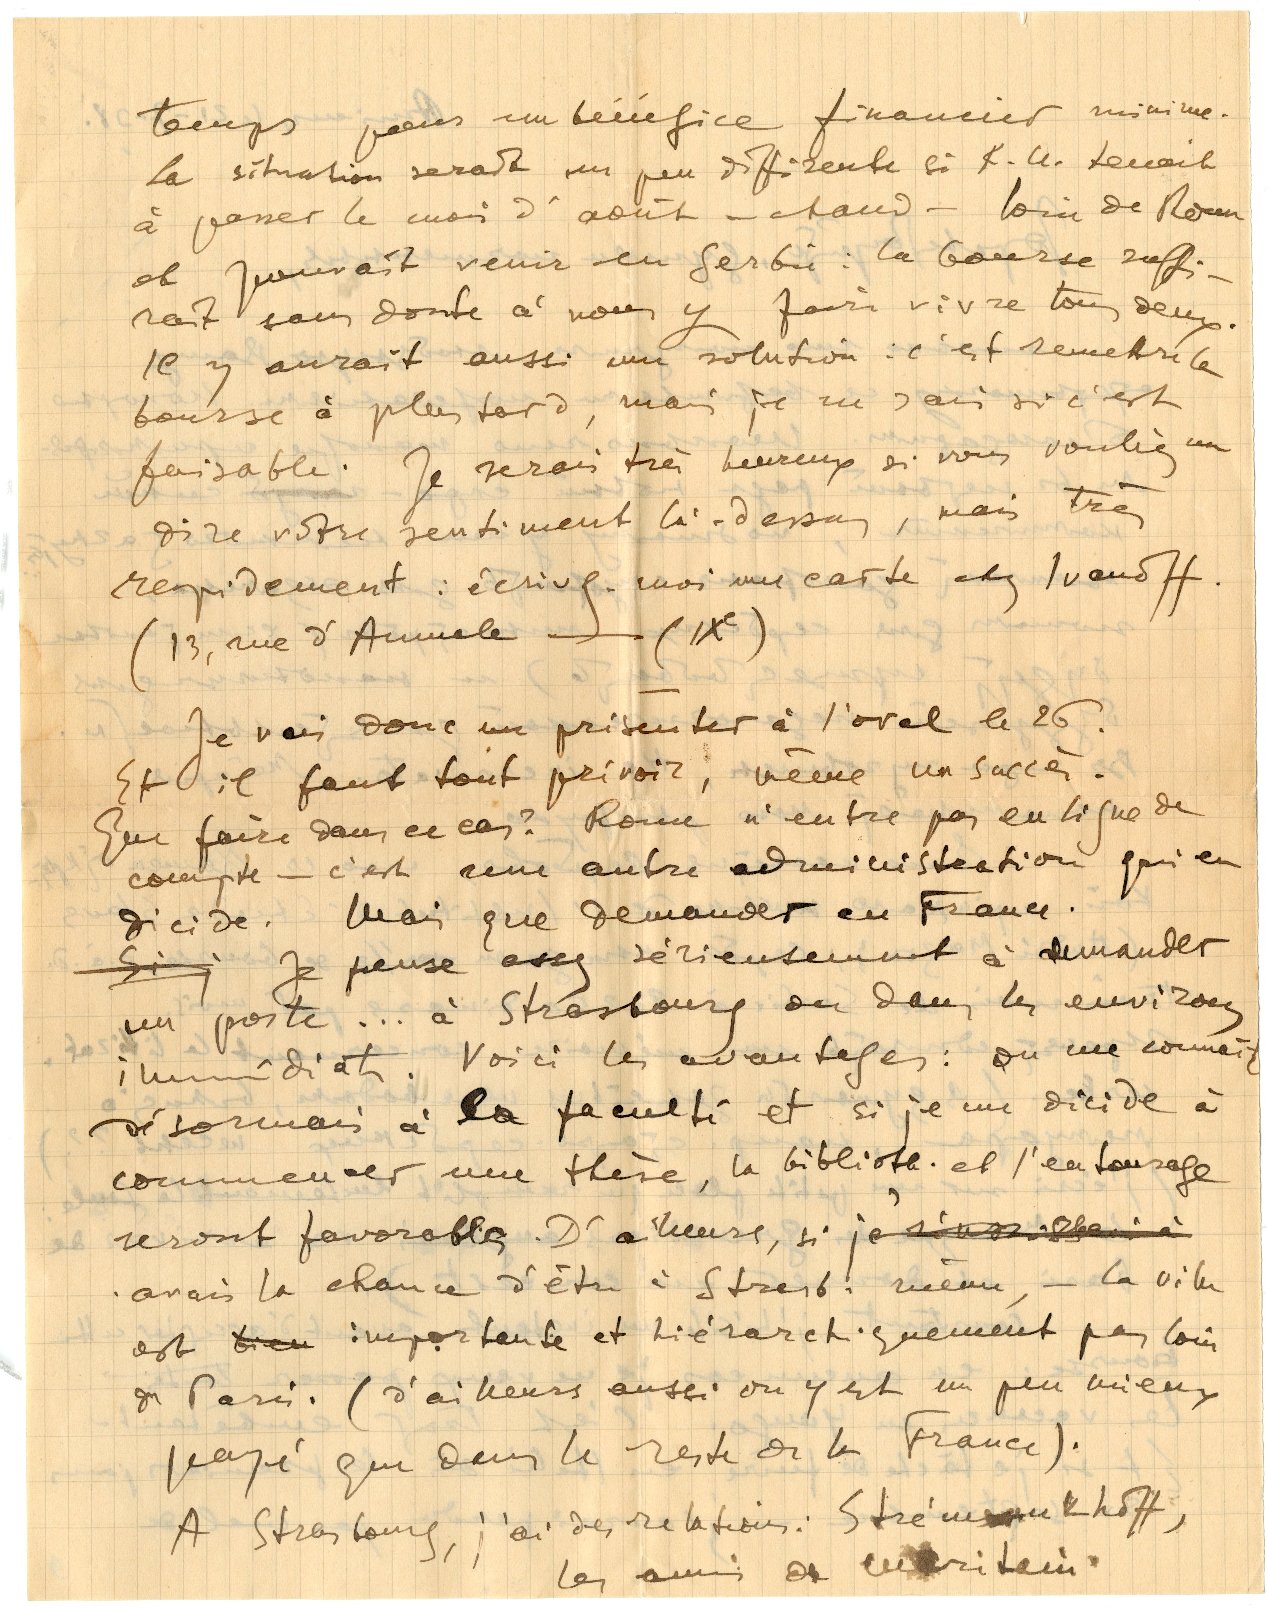 temps pour un bénéfice financier minime.
La situation serait un peu différente si K. U. tenait
à passer le mois d'août – chaud – loin de Rome
et pouvait venir en Serbie : la bourse suffi-
rait sans doute à nous y faire vivre tous deux.
Il y aurait aussi une solution : c'est remettre la
bourse à plus tard, mais je ne sais si c'est
faisable. Je serais très heureux si vous vouliez me
dire votre sentiment là-dessus, mais très
rapidement : écrivez-moi une carte chez Ivanoff.
(13, rue d'Aumale — (IXe)
Je vais donc me présenter à l'oral le 26.
Et il faut tout prévoir, même un succès.
Que faire dans ce cas? Rome n'entre pas en ligne de
compte – c'est une autre administration qui en
décide. Mais que demander en France.
Si j Je pense assez sérieusement à demander
un poste ... à Strasbourg ou dans les environs
immédiats. Voici les avantages : on me connaît
désormais à la faculté et si je me décide à
commencer une thèse, la biblioth. et l'entourage
seront favorables. D'ailleurs, si j'
avais la chance d'être à Strasb. même, – la ville
est bien importante et hiérarchiquement pas loin
de Paris. (d'ailleurs aussi on y est un peu mieux
payé que dans le reste de la France).
A Strasbourg, j'ai des relations : Strémooukhoff,
les amis de Maritain.